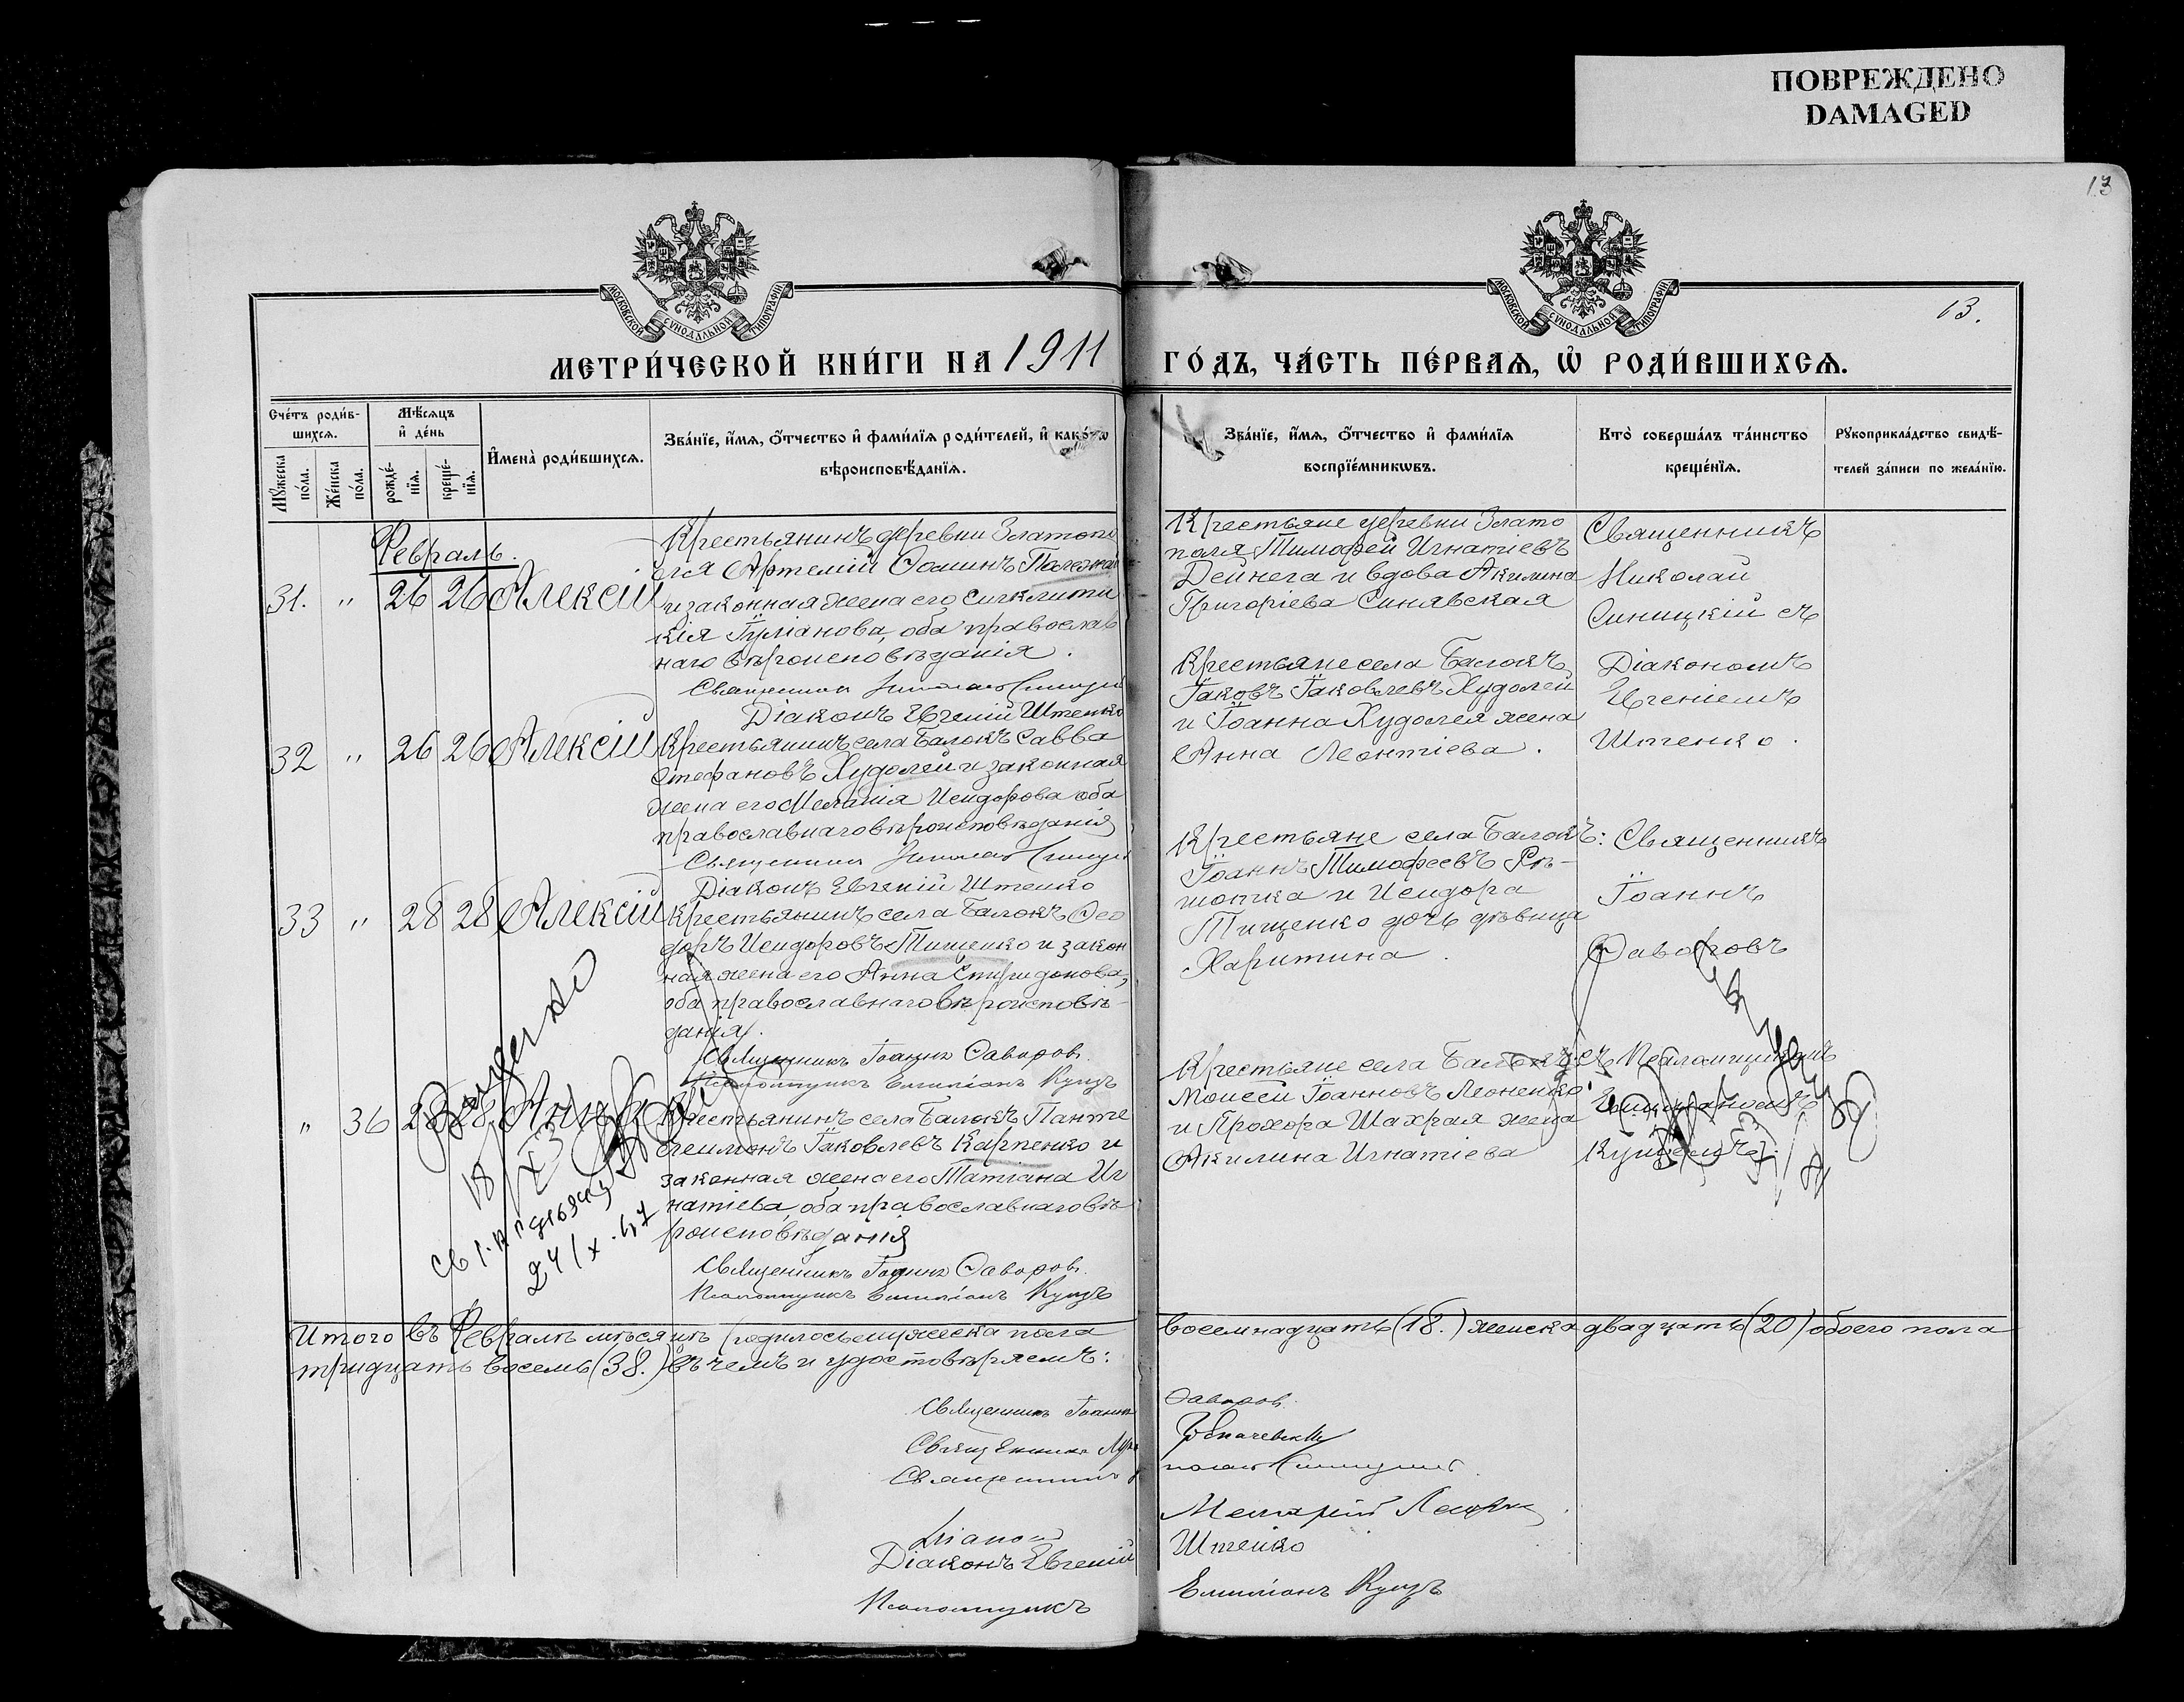 ПОВРЕЖДЕНО
DAMAGED
13
13.
МОСКОВСКОЙ СУНОДАЛЬНОЙ ТИПОГРАФІИ
МОСКОВСКОЙ СУНОДАЛЬНОЙ ТИПОГРАФІИ
МЕТРИ́ЧЕСКОЙ КНИ́ГИ НА 1911 ГО́ДЪ, ЧА́СТЬ ПЕ́РВАѦ, Ѡ҆ РОДИ́ВШИХСѦ.
Сче́тъ роди́в-
шихсѧ.
Мꙋ́жеска
по́ла.
Же́нска
по́ла.
Мѣ́сѧцъ
и҆ де́нь
рожде́-
нїѧ.
креще́-
нїѧ.
И҆мена̀ роди́вшихсѧ.
Зва́нїе, и҆́мѧ, ѻ҆́тчество и҆ фами́лїѧ роди́телей, и҆ како́гѡ
вѣроисповѣ́данїѧ.
Зва́нїе, и҆́мѧ, ѻ҆́тчество и҆ фами́лїѧ
воспрїе́мникѡвъ.
Кто̀ соверша́лъ та́инство
креще́нїѧ.
Рꙋкоприкла́дство свидѣ́-
телей за́писи по жела́нїю.
Февраль.
31. " 26 26 Алексій
Крестьянинъ деревни Златопо
ля Артемій Ѳоминъ
и законная жена его Синклити
кія Іуліанова, оба православ
наго вѣроисповѣданія.
Священникъ Николай Синицкій
Діаконъ Евгеній Штенко
Крестьяне деревни Злато
поля Тимофей Игнатіевъ
Дейнега и вдова Акилина
Григоріева Синявская
Священникъ
Николай
Синицкій съ
Діакономъ
Евгеніемъ
Штенко.
32 " 26 26 Алексій
Крестьянинъ села Балокъ Савва
Стефановъ Худолей и законная
жена его Меланія Исидорова оба
православнаго вѣроисповѣданія
Священникъ Николай Синицкій
Діаконъ Евгеній Штенко
Крестьяне села Балокъ
Іаковъ Іаковлевъ Худолей
и Іоанна Худолея жена
Анна Леонтіева.
33 " 28 28 Алексій
Крестьянинъ села Балокъ Ѳео
доръ Исидоровъ Тищенко и закон
ная жена его Анна Спиридонова,
оба православнаго вѣроисповѣ-
данія.
Священникъ Іоаннъ Ѳаворовъ
Псаломщикъ Емиліанъ Куцъ
Крестьяне села Балокъ:
Іоаннъ Тимофеевъ Рѣ-
шотка и Исидора
Тищенко дочь дѣвица
Харитина.
Священникъ
Іоаннъ
Ѳаворовъ
" 36 28 28 Анна
Крестьянинъ села Балокъ Панте
леимонъ Іаковлевъ Карпенко и
законная жена его Татіана Иг
натіева, оба православнаго вѣ
роисповѣданія
Священникъ Іоаннъ Ѳаворовъ
Псаломщикъ Емиліанъ Куцъ
Крестьяне села Балокъ
Моисей Іоанновъ Леоненко
и Прохора Шахрая жена
Акилина Игнатіева
съ Псаломщикомъ
Емиліаномъ
24/X.47
Итого въ Февралѣ мѣсяцѣ родилось мужеска пола восемнадцать (18.) женска двадцать (20) обоего пола
тридцать восемь (38.) въ чемъ и удостовѣряемъ:
Священникъ Іоаннъ Ѳаворовъ
Священникъ
Священникъ Николай Синицкій
Діаконъ
Діаконъ Евгеній Штенко
Псаломщикъ Емиліанъ Куцъ